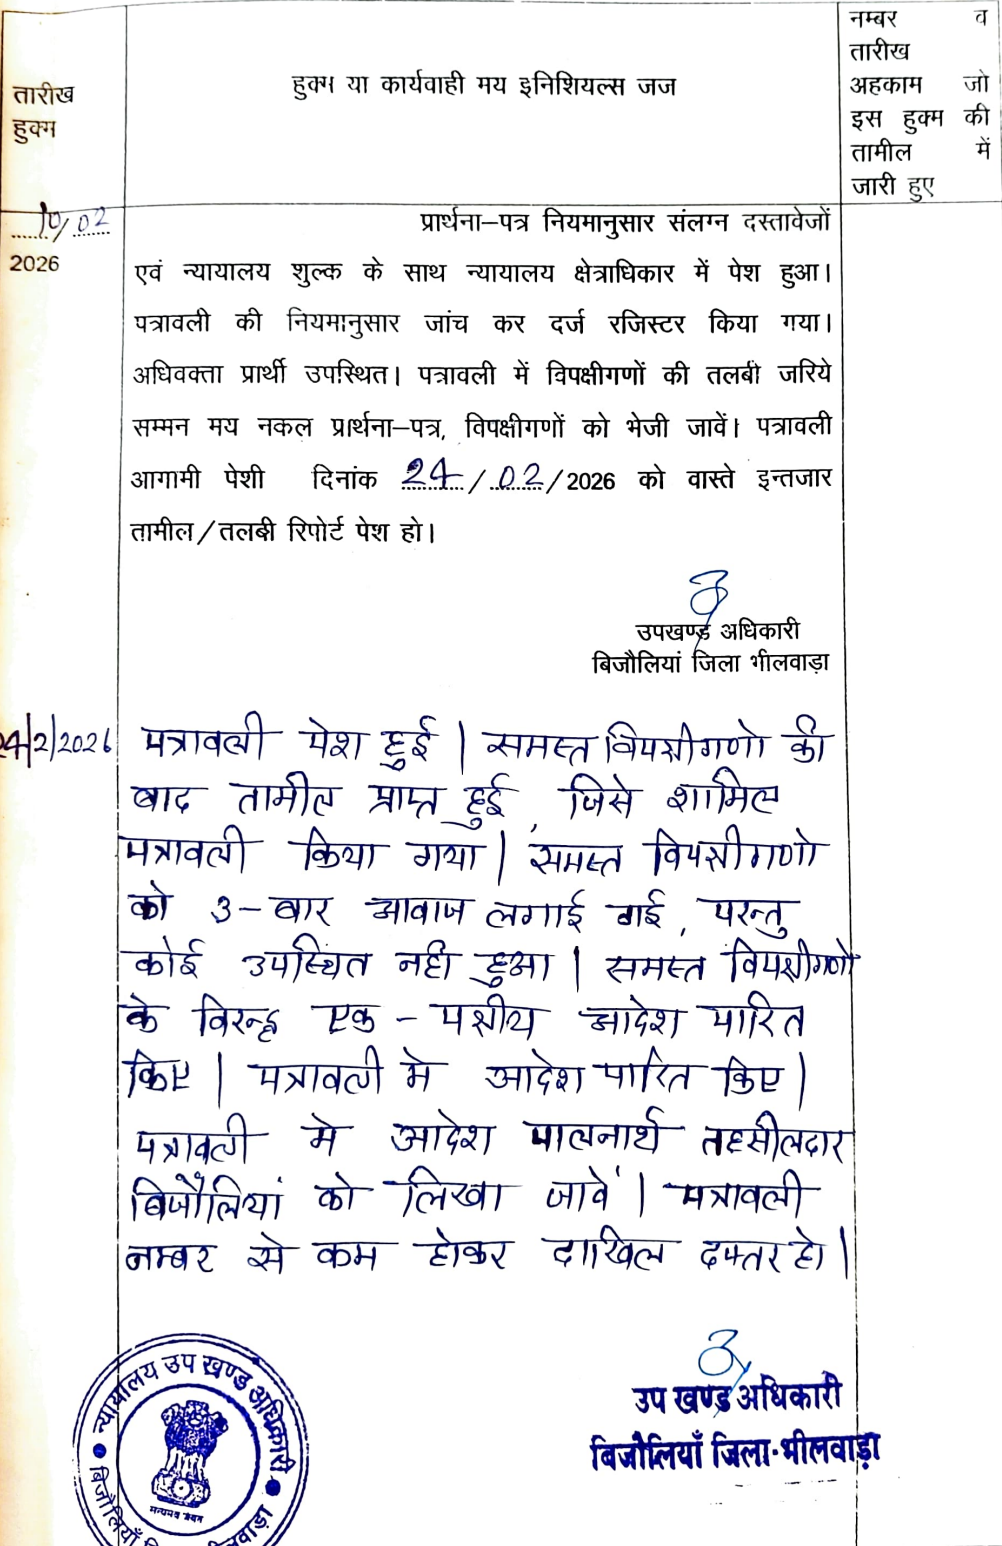 तारीख
हुक्म
हुक्म या कार्यवाही मय इनिशियल्स जज
नम्बर व
तारीख
अहकाम जो
इस हुक्म की
तामील में
जारी हुए
10/02
2026
प्रार्थना–पत्र नियमानुसार संलग्न दस्तावेजों
एवं न्यायालय शुल्क के साथ न्यायालय क्षेत्राधिकार में पेश हुआ।
पत्रावली की नियमानुसार जांच कर दर्ज रजिस्टर किया गया।
अधिवक्ता प्रार्थी उपस्थित। पत्रावली में विपक्षीगणों की तलबी जरिये
सम्मन मय नकल प्रार्थना–पत्र, विपक्षीगणों को भेजी जावें। पत्रावली
आगामी पेशी दिनांक 24/02/2026 को वास्ते इन्तजार
तामील/तलबी रिपोर्ट पेश हो।
उपखण्ड अधिकारी
बिजौलियां जिला भीलवाड़ा
24/2/2026 पत्रावली पेश हुई | समस्त विपक्षीगणो की
बाद तामील प्राप्त हुई, जिसे शामिल
पत्रावली किया गया | समस्त विपक्षीगणो
को 3-बार आवाज लगाई गई, परन्तु
कोई उपस्थित नही हुआ | समस्त विपक्षीगणो
के विरुद्ध एक - पक्षीय आदेश पारित
किए | पत्रावली मे आदेश पारित किए |
पत्रावली मे आदेश पालनार्थ तहसीलदार
बिजौलियां को लिखा जावें | पत्रावली
नम्बर से कम होकर दाखिल दफ्तर हो |
उप खण्ड अधिकारी
बिजौलियाँ जिला-भीलवाड़ा
न्यायालय उप खण्ड अधिकारी
बिजौलियाँ